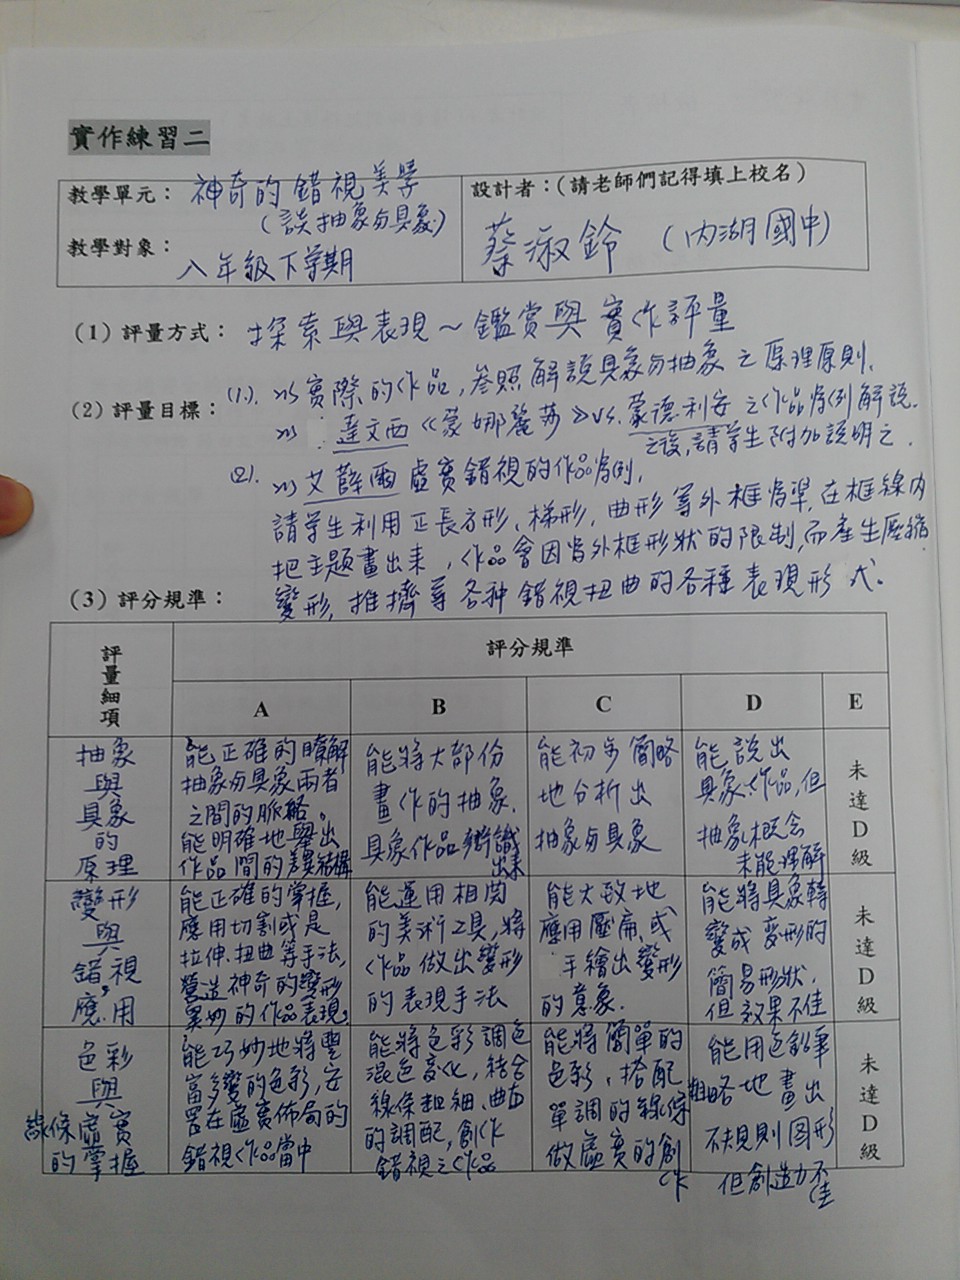 實作練習二
教學單元：神奇的錯視美學
（談抽象與具象）
教學對象：八年級下學期
設計者：（請老師們記得填上校名）
蔡淑鈴（內湖國中）
（1）評量方式：探索與表現～鑑賞與實作評量
（2）評量目標：
(1). 以實際的作品，參照解說具象與抽象之原理原則.
以達文西《蒙娜麗莎》vs.蒙德利安之作品為例解說.
之後,請學生附加說明之.
(2). 以艾薛爾虛實錯視的作品為例,
請學生利用正長方形、梯形,曲形等外框為準,在框線內
把主題畫出來,作品會因為外框形狀的限制,而產生壓縮
變形,推擠等各种錯視扭曲的各種表現形式.
（3）評分規準：
評量細項
評分規準
A
B
C
D
E
抽象
與
具象
的
原理
能正確的瞭解
抽象與具象兩者
之間的脈絡。
能明確地舉出
作品間的差異結構
能將大部份
畫作的抽象.
具象作品辨識
出來
能初步簡略
地分析出
抽象與具象
能說出
具象作品,但
抽象概念
未能理解
未達D級
變形
與
錯視
應用
能正確的掌握,
應用切割或是
拉伸.扭曲等手法,
營造神奇的變形
異妙的作品表現。
能運用相関
的美術工具,將
作品做出變形
的表現手法
能大致地
應用壓扁,或
手繪出變形
的意象.
能將具象轉
變成變形的
簡易形狀.
但效果不佳
未達D級
色彩
與
線條虛實
的掌握
能巧妙地將豐
富多變的色彩,安
置在虛實佈局的
錯視作品當中
能將色彩調色
混色變化,結合
線條粗細、曲直
的調配,創作
錯視之作品
能將簡單的
色彩、搭配
單調的線條
做虛實的創
作
能用色鉛筆
粗略地畫出
不規則图形
但創造力不
佳
未達D級